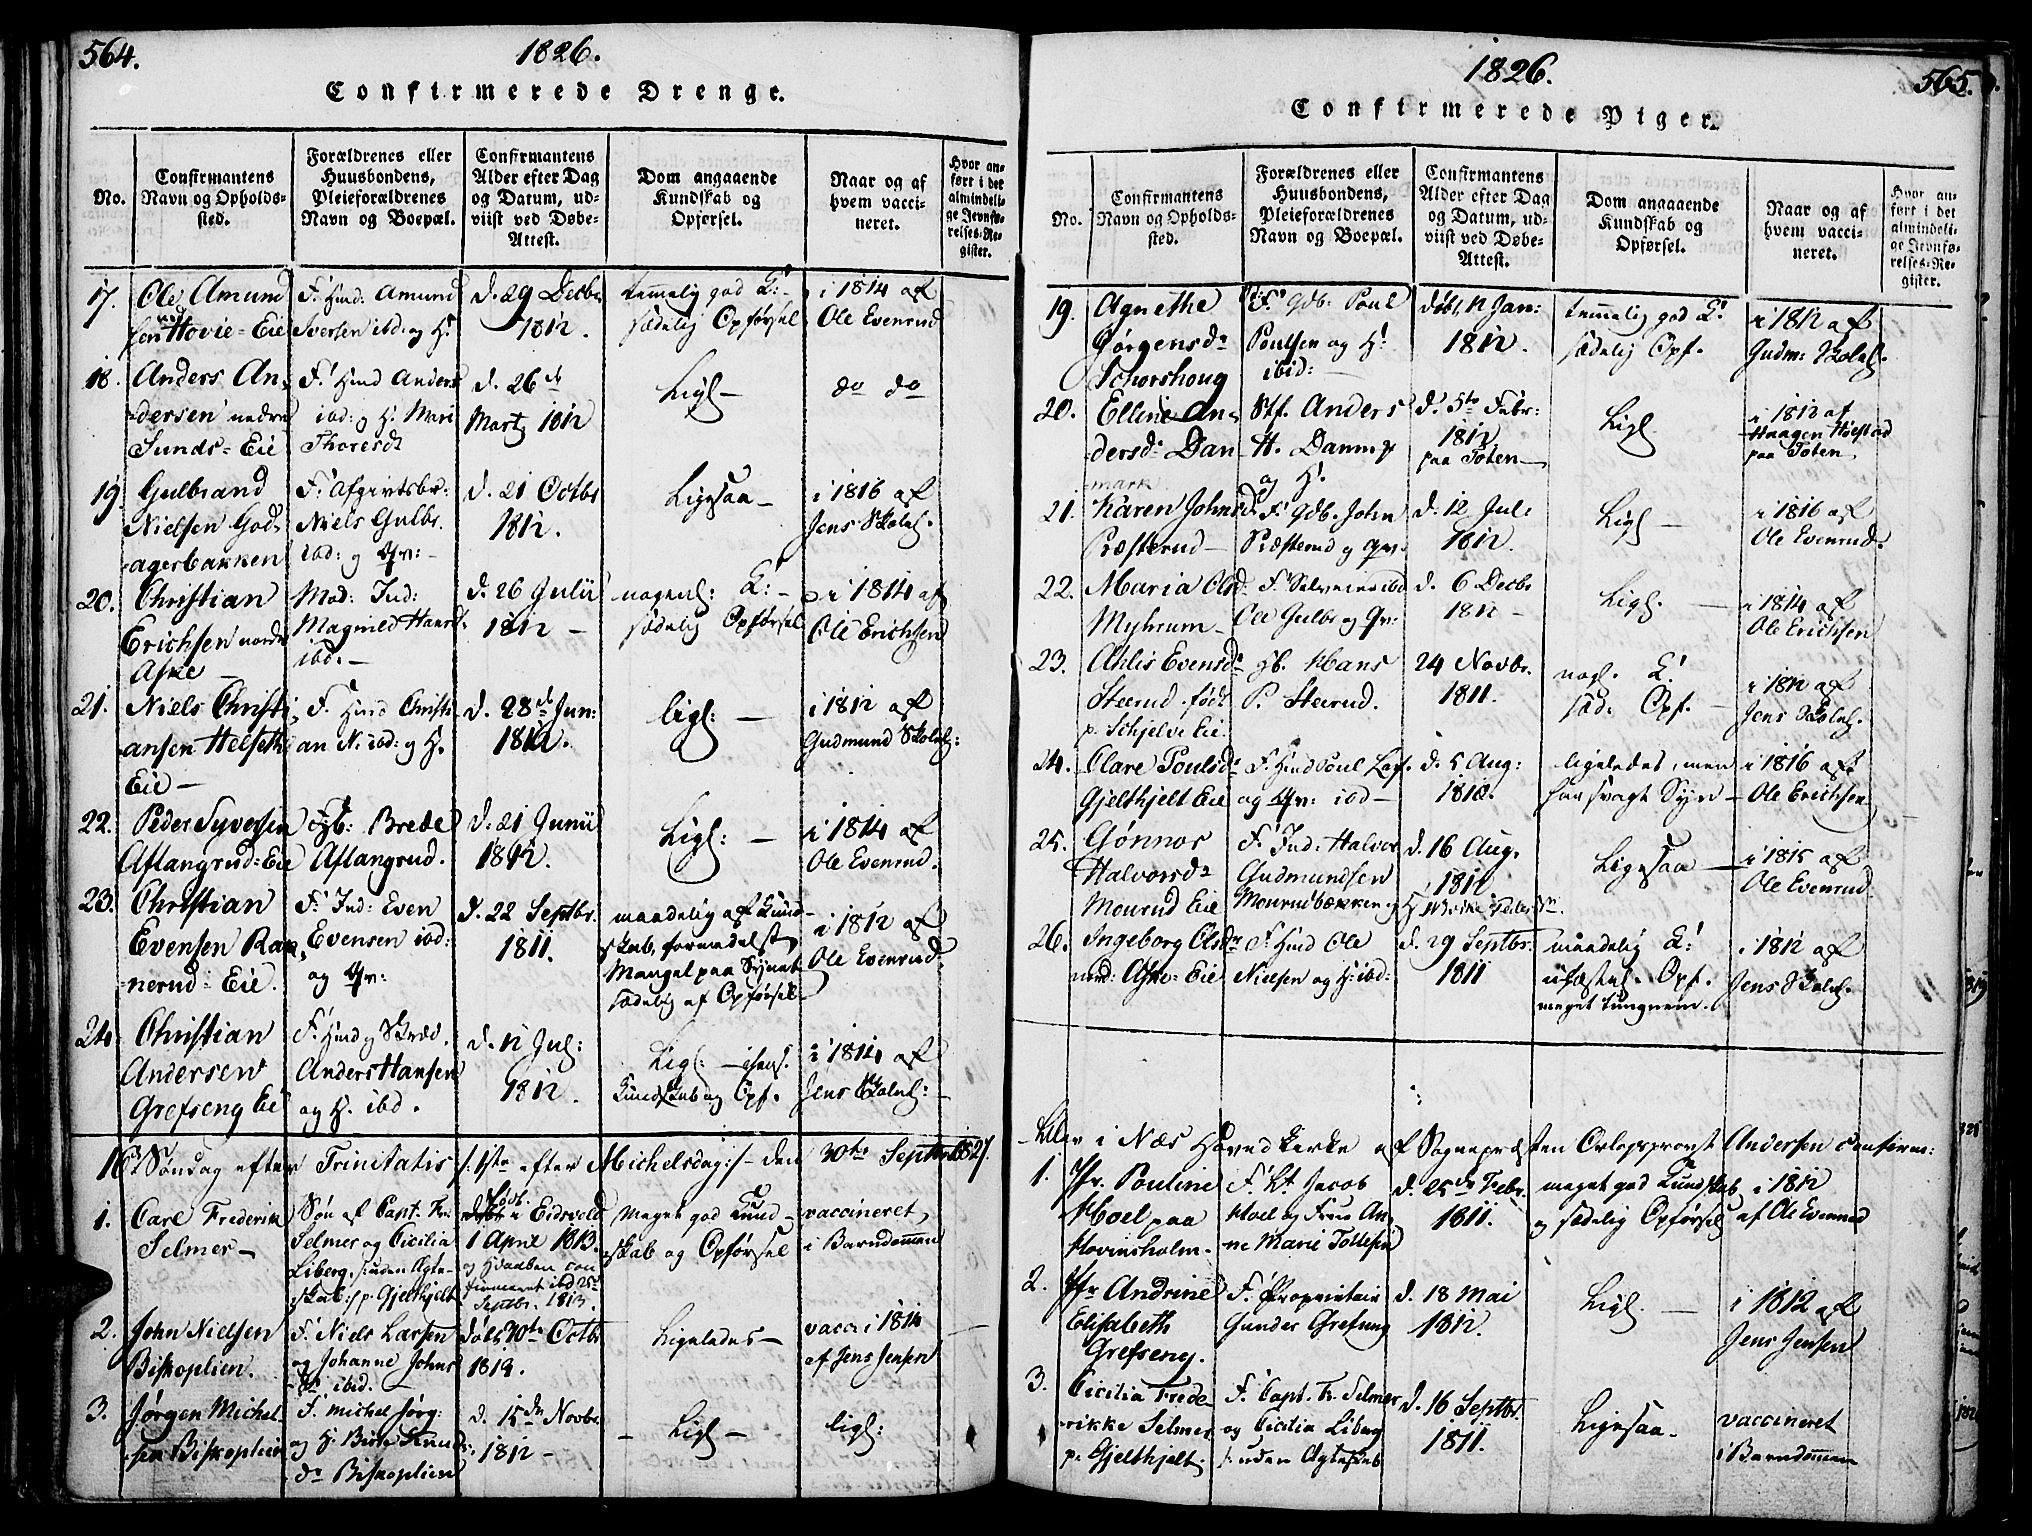 564.
1826.
Confirmerede Drenge.
No.
Confirmantens
Navn og Opholds-
sted.
Forældrenes eller
Huusbondens,
Pleieforældrenes
Navn og Boepæl.
Confirmantens
Alder efter Dag
og Datum, ud-
viist ved Døbe-
Attest.
Dom angaaende
Kundskab og
Opførsel.
Naar og af
hvem vacci-
neret.
Hvor an-
ført i det
almindeli-
ge Jevnfø-
relses-Re-
gister.
17.
Ole Amund
sen Hovie=Eie
F. Hmd: Amund
Iversen ibd: og H.
d. 29 Decbr
1812.
temmelig god K:
sædelig Opførsel
i 1814 af
Ole Evenrud
18.
Anders An-
dersen nedre
Sunds=Eie
F. Hmd Anders
ibd: og H. Mari
Thoresdr
d. 26de
Marty 1812
Ligl—
do do
19.
Gulbrand
Nielsen God-
agerbakken
F. Afgivtsbr:
Niels Gulbr.
ibd: og Qv:—
d. 21 Octbr
1812.
Ligesaa—
i 1816 af
Jens Skolel.
20.
Christian
Erichsen nordr
Aske
Mod: Ind:
Magnild Hansd.
ibd.—
d. 26 Julii
1812—
nogenl: K:—
sædelig Opførsel
i 1814 af
Ole Erichsen
21.
Niels Christi-
ansen Helseth
Eie—
F. Hmd Christi
an N. ibd: og H.
d. 28de Jun:
1812.
ligl:—
i 1812 af
Gudmund Skolel:
22.
Peder Syversen
Aflangrud=Eie
Brede
Aflangrud.
d. 21 Junii
1812.
Ligl:—
i 1814 af
Ole Evenrud.
23.
Christian
Evensen Ran-
nerud=Eie.
F. Ind: Even
Evensen ibd:
og Qv:
d. 22 Septbr.
1811.
maadelig af Kund-
skab, formedelst
Mangel paa Synet
sædelig af Opførsel—
i 1812 af
Ole Evenrud.
24
Christian
Andersen
Grefseng Eie
F. Hmd og Skræd.
Anders Hansen
og H. ibd.
d. 12 Jul:
1812.
Ligl:
Kundskab og Opf.
i 1814 af
Jens Skolel:
16de Søndag efter Trinitatis /: 1ste efter Michelsdag:/ den 30te Septbr 1827.
1.
Carl Frederik
Selmer—
Søn af Capt. Fr.
Selmer og Cicilia
Liberg, /:uden Ægte-
skab:/ p. Gjelthjelt
i Eidsvold
1 April 1813.
ibd 25de
Septbr. 1813.
Meget god Kund-
skab og Opførsel
vaccineret
i Barndommen
2.
John Nielsen
Biskoplien.
F. Niels Larsen
og Johanne Johns
dr ibid.
Octbr
Ligeledes—
vacc: i 1814
af Jens Jensen
3.
Jørgen Michel-
sen Biskoplien
F. Michel Jørg:
og H. Birte Knuds
dr Biskoplien
d. 15de Novbr.
1812—
Ligl—
ligl:
1826.
565.
Confirmerede Piger.
No.
Confirmantens
Navn og Opholds-
sted.
Forældrenes eller
Huusbondens,
Pleieforældrenes
Navn og Boepæl.
Confirmantens
Alder efter Dag
og Datum, ud-
viist ved Døbe-
Attest.
Dom angaaende
Kundskab og
Opførsel.
Naar og af
hvem vacci-
neret.
Hvor an-
ført i det
almindeli-
ge Jevnfø-
relses-Re-
gister.
19.
Agnethe
Jørgensdr
Schorshoug
Gdb: Poul
Poulsen og H.
ibid:
døbt 12 Jan:
1812.
temmelig god K:
sædelig Opf.
i 1812 af
Gudm: Skolel.
20.
Elline An-
dersd: Dan
mark
Stf. Anders
H. Danm:
og H.
d. 5te Febr:
1812.
paa Toten—
Ligl.
i 1812 af
Haagen Høistad
paa Toten
21.
Karen Johnsd.
Præsterud—
F. Gdb. John
Præsterud og Qv:
d. 12 Jul:
1812.
Ligl—
i 1816 af
Ole Evenrud.
22.
Maria Olsd:
Myhrum—
F. Selveier ibd
Ole Gulbr og Qv:
d. 6 Decbr
1812—
Ligl.—
i 1814 af
Ole Erichsen
23.
Ahlis Evensdr
Steerud. født
p. Schjelve Eie.
Gb. Hans
P. Steerud.
24 Novbr.
1811.
nogl. K:
sæd: Opf.—
i 1812 af
Jens Skolel.
24.
Clare Poulsdr
Gjelthjelt Eie
F. Hmd Poul Lars.
og Qv: ibd—
d. 5 Aug:
1812.
ligeledes, men
har svagt Syn—
i 1816 af
Ole Erichsen
25.
Gønnor
Halvorsdr
Mourud Eie
F. Ind: Halvor
Gudmundsen
Mourudbækken og
d. 16 Aug.
1812
H. Peders Dr.
Ligesaa—
i 1815 af
Ole Evenrud.
26.
Ingeborg Olsdr
nerd: Aske=Eie
F. Hmd Ole
Nielsen og H: ibd:
d. 29 Septbr.
1811
maadelig K:
Opf.
meget tungnem.
i 1812 af
Jens Skolel.
i Næs Hovedkirke af Sognepræsten Orlogsprovst Andersen confirm:
1.
Jfr. Pouline
Hoel paa
Hovinsholm.
F. Lt. Jacob
Hoel og Frue An-
ne Marie Tollefsen
d. 25de Febr.
1811.
meget god Kundskab
og sædelig Opførsel
i 1812
af Ole Evenrud
2.
Jfr Andrine
Elisabeth
Grefseng.
F. Proprietair
Gunder Grefseng
d. 18 Mai
1812.
Ligl.—
i 1812 af
Jens Jensen
3.
Cicilia Frede-
rikke Selmer
p. Gjelthjelt.
F. Capt. Fr. Selmer
og Cicilia Liberg
/: uden Ægteskab
d. 16 Septbr.
1811.
Ligesaa—
vaccineret
i Barndommen